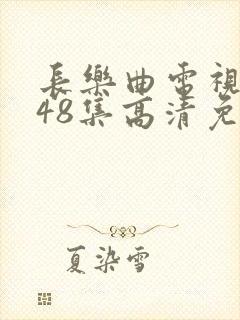 長樂曲電視
48集高清免
夏染雪